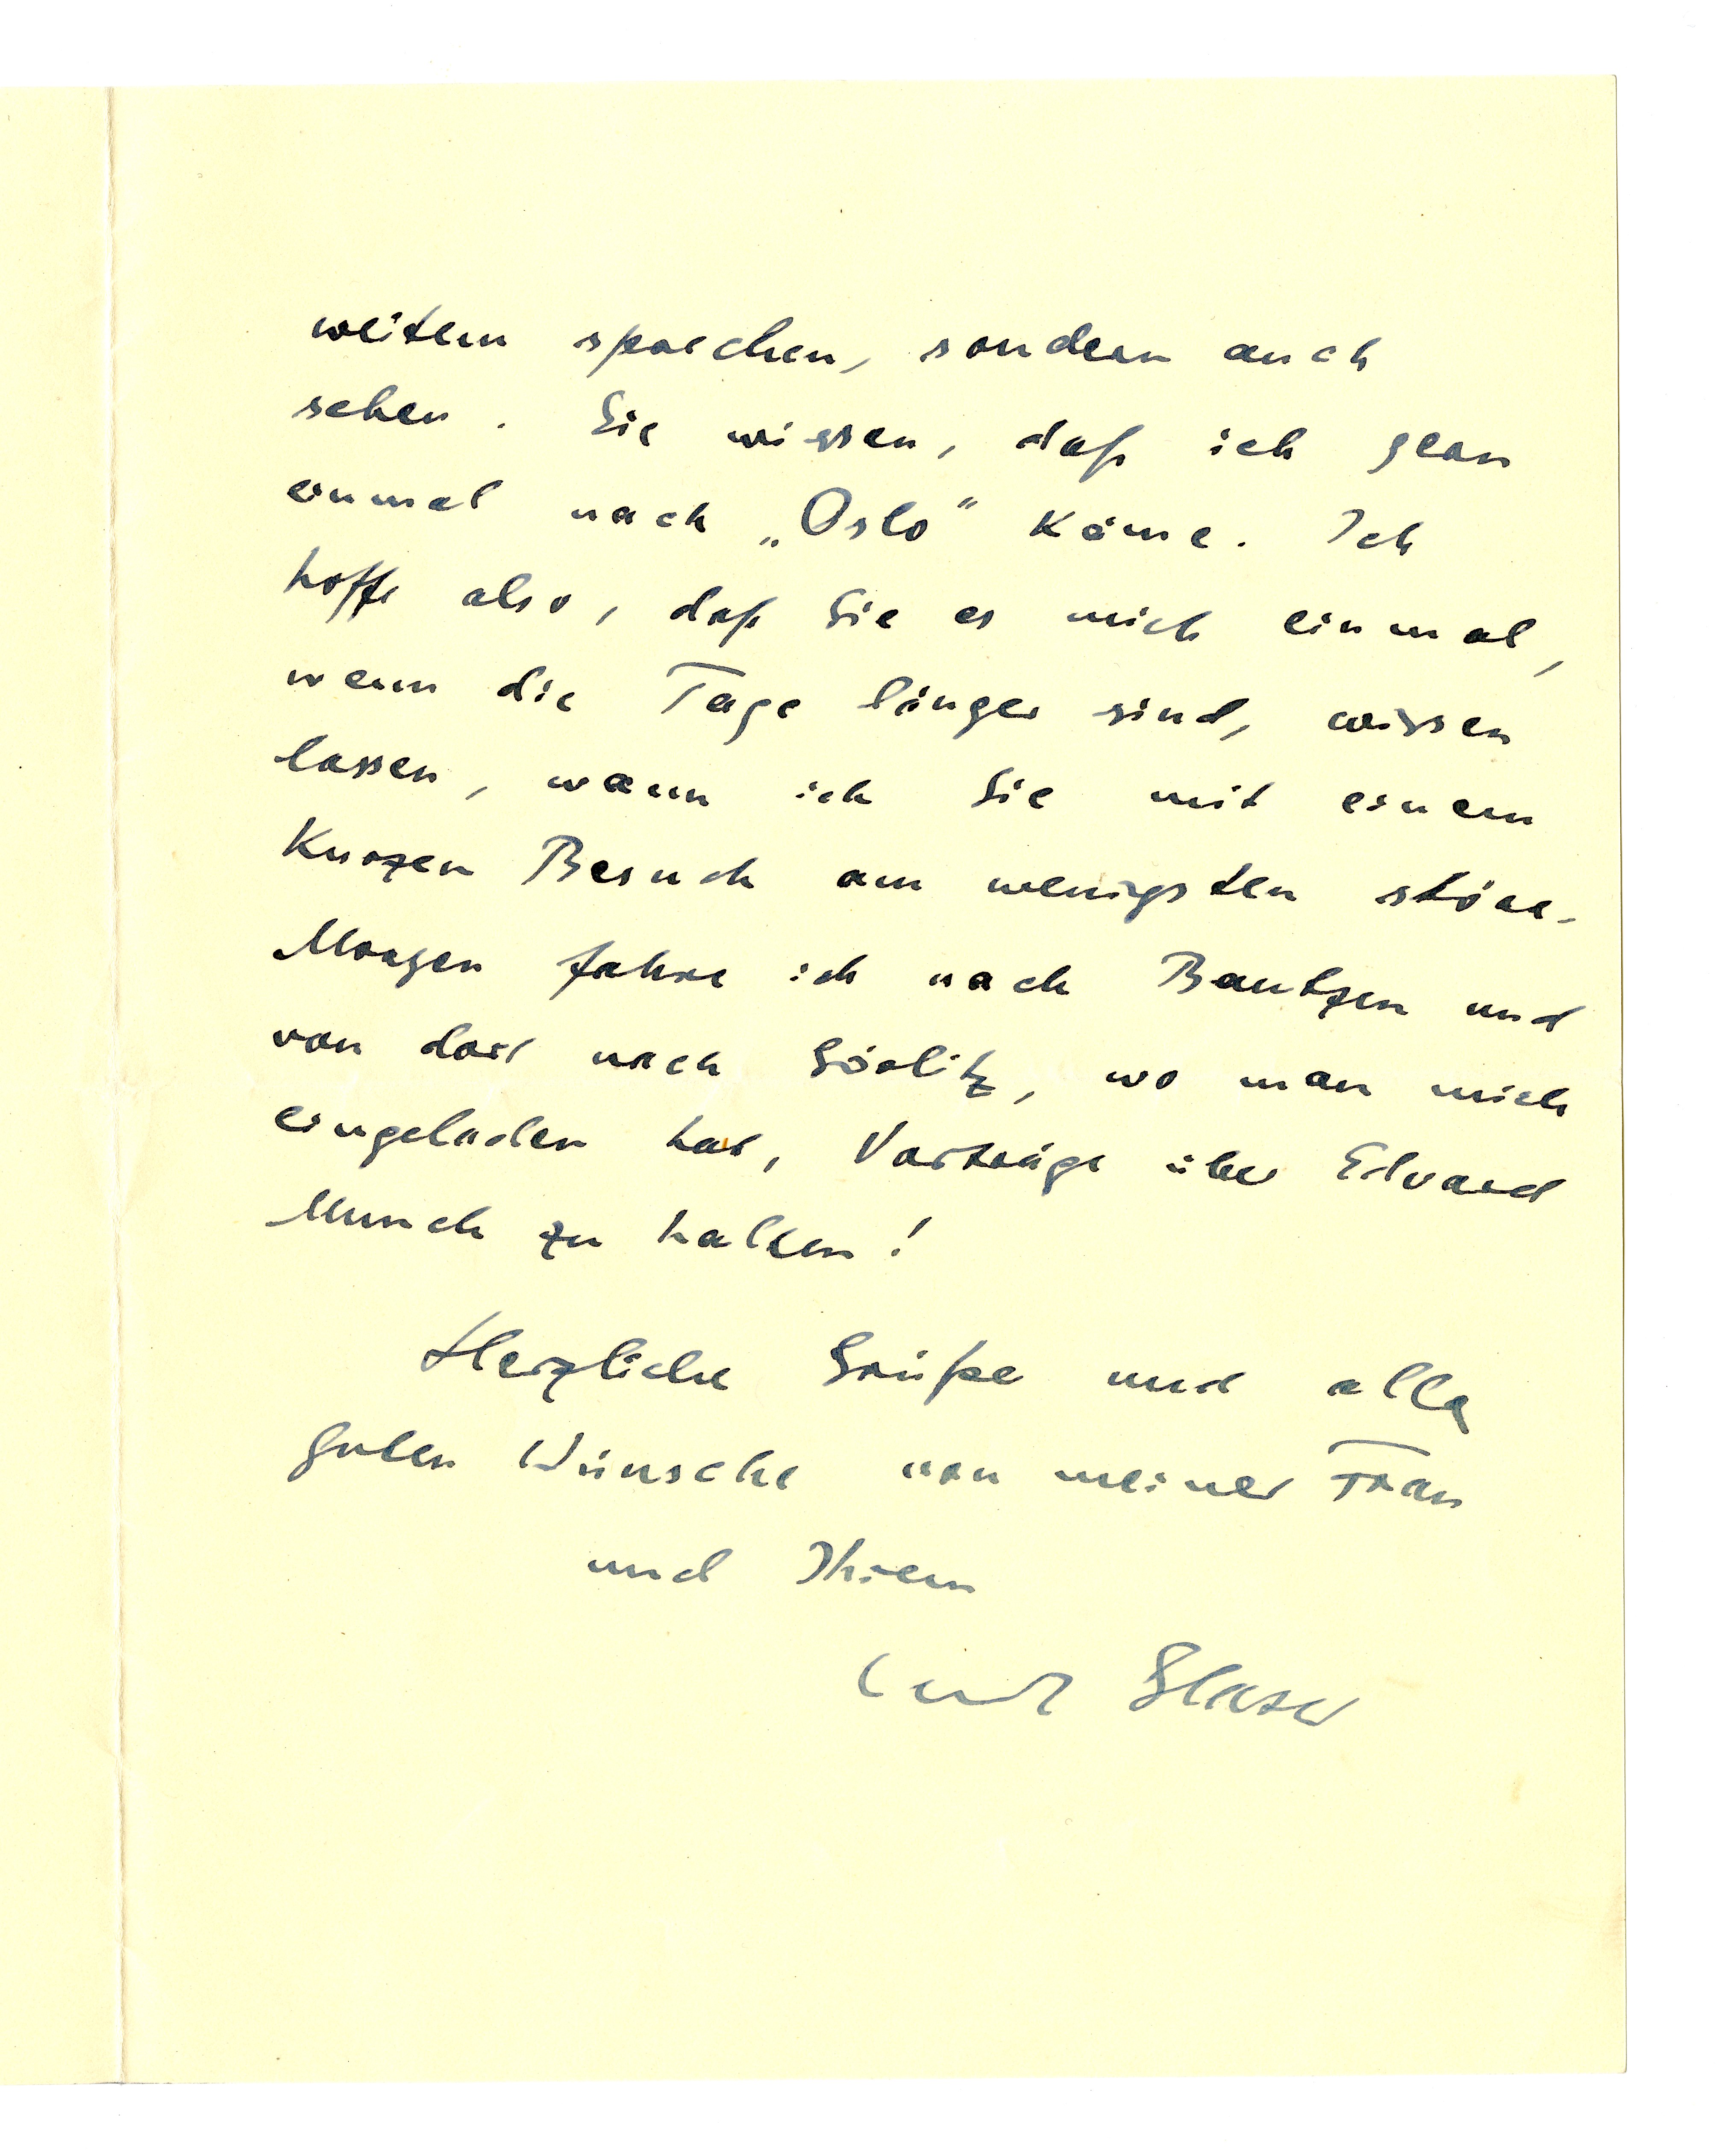 weitem sprechen, sondern auch
sehen. Sie wissen, daß ich gern
einmal nach „Oslo“ käme. Ich
hoffe also, daß Sie es mich einmal,
wenn die Tage länger sind, wissen
lassen, wann ich Sie mit einem
kurzen Besuch am wenigsten störe.
Morgen fahre ich nach Bautzen und
von dort nach Görlitz, wo man mich
eingeladen hat, Vorträge über Edvard
Munch zu halten!
Herzliche Grüße und alle
guten Wünsche von meiner Frau
und Ihrem
Curt Glaser